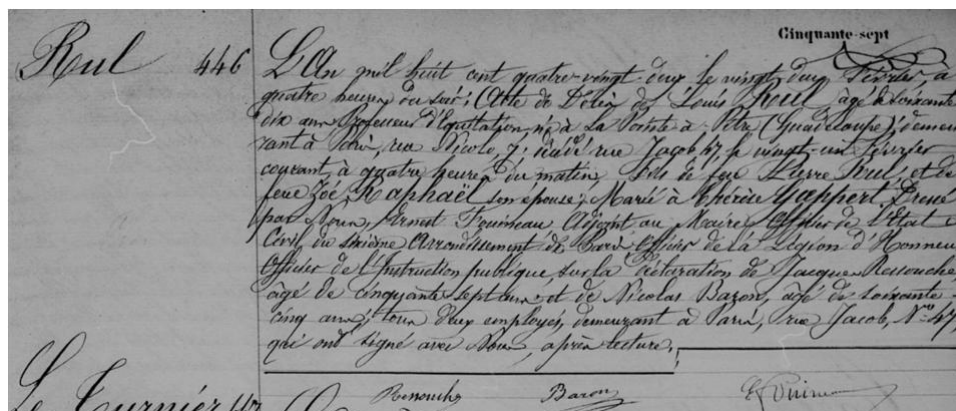 Cinquante-sept
Rul 446 L'An mil huit cent quatre-vingt-deux le vingt deux Février, à
quatre heures du soir; Acte de Décès de Louis Rul, âgé de soixante
dix ans Professeur d'Equitation, né à La Pointe à Pitre (Guadeloupe); demeu
rant à Paris, rue Nicolo, 7; décédé rue Jacob 47, le vingt-un Février
courant, à quatre heures du matin, fils de feu Pierre Rul, et de
feue Zoé, Raphaël son épouse; Marié à Thérèse Gappert. Dressé
par Nous, Ernest Adjoint au Maire, officier de l'Etat
Civil du sixième Arrondissement de Paris Officier de la Légion d'Honneur
Officier de l'Instruction publique, sur la déclaration de Jacques Ressouche,
âgé de cinquante sept ans et de Nicolas Bazon, âgé de soixante-
cinq ans; tous deux employés, demeurant à Paris, rue Jacob, No 47,
qui ont signé avec Nous, après lecture.
Ressouche Baron
Le Turnier